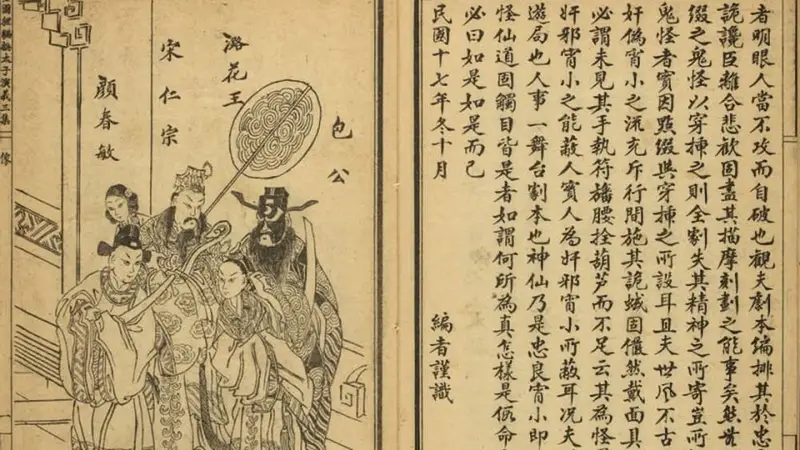 者明眼人當不攻而自破也觀夫劇本編排其於忠
詭讒臣離合悲歡固盡其描摩刻劃之能事矣然
綴之鬼怪以穿揷之則全劇失其精神之所寄豈所
鬼怪者實因點綴與穿揷之所設耳且夫世風不古
奸僞宵小之流充斥行間施其詭蜮固儼然戴面具
必謂未見其手執符旛腰拴葫芦而不足云其為怪
奸邪宵小之能蔽人實人為奸邪宵小所蔽耳况夫
遊局也人事一舞台劇本也神仙乃是忠良宵小即
怪仙道固觸目皆是者如謂何所為真怎樣是仮命
必曰如是如是而已
民國十七年冬十月
編者謹識
包公
潞花王
宋仁宗
顏春敏
太子演義二集
像